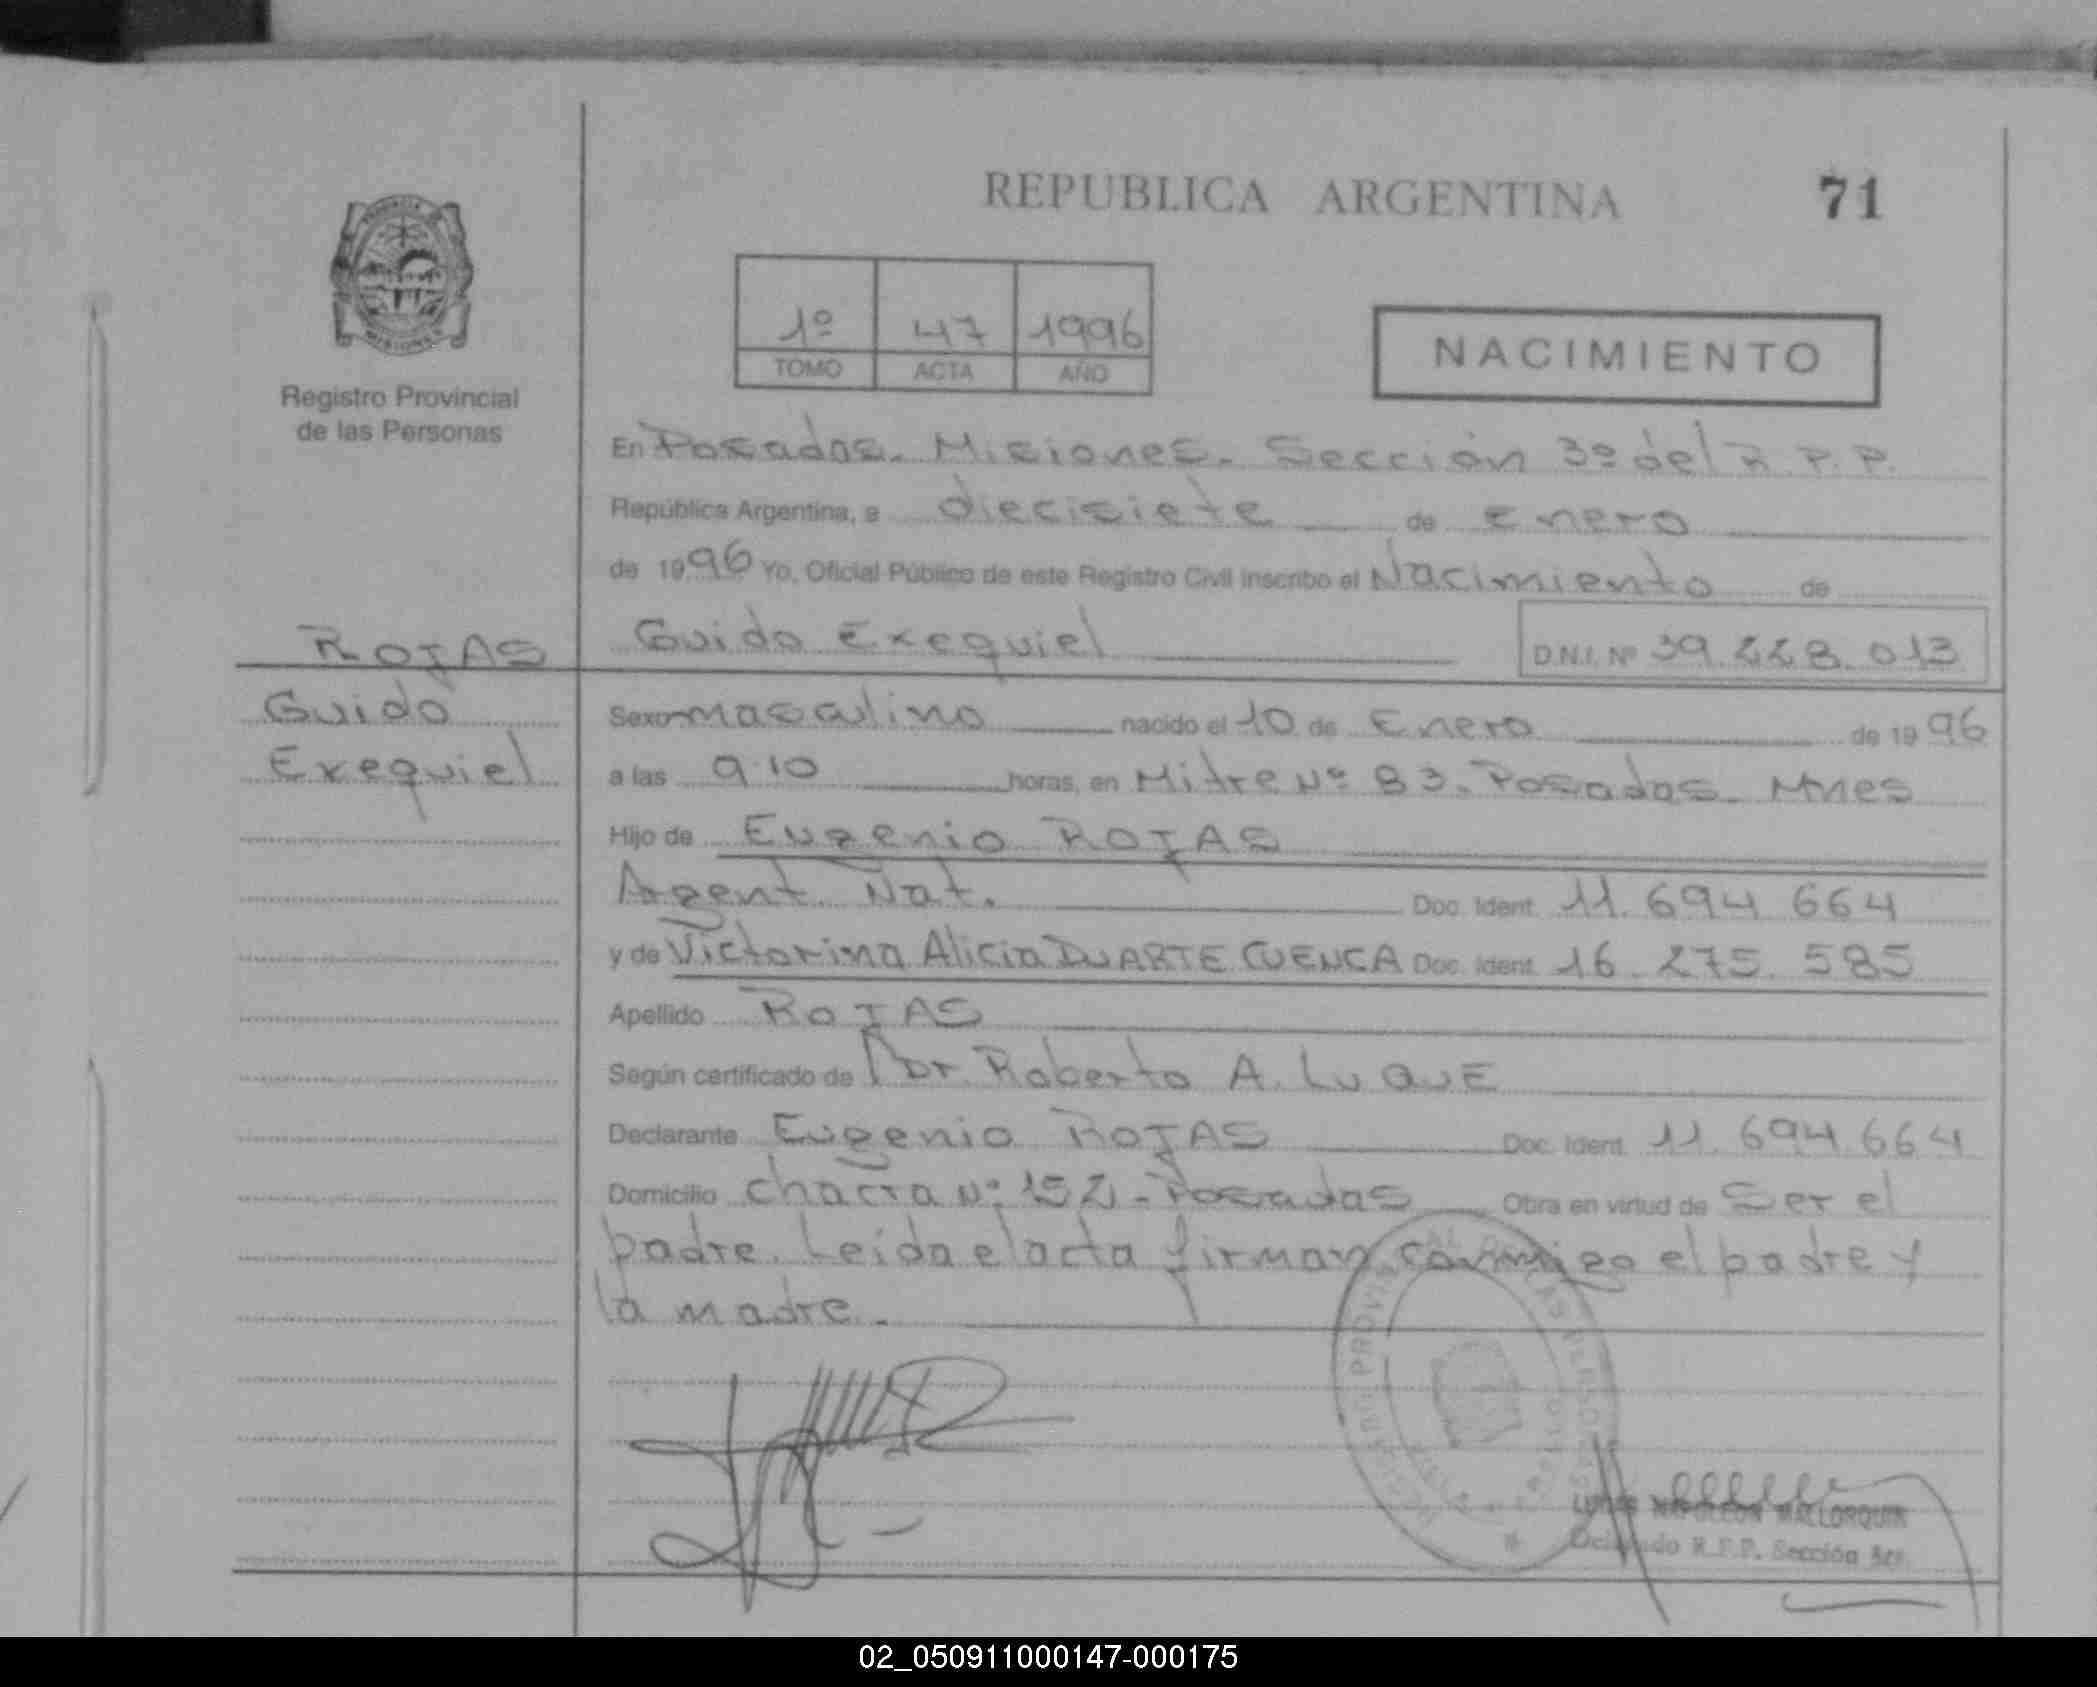 REPUBLICA ARGENTINA 71
PROVINCIA DE
MISIONES
Registro Provincial
de las Personas
1º 47 1996
TOMO ACTA AÑO
NACIMIENTO
En Posadas. Misiones. Sección 3º del R.P.P.
República Argentina, a diecisiete de Enero
de 1996 Yo, Oficial Público de este Registro Civil inscribo el Nacimiento de
ROJAS Guido Exequiel D.N.I. Nº 39.228.013
Guido Sexo masculino nacido el 10 de Enero de 1996
Exequiel a las 9.10 horas, en Mitre Nº 83. Posadas. Mnes
Hijo de Eugenio ROJAS
Argent. Nat. Doc. Ident. 11.694.664
y de Victorina Alicia DUARTE CUENCA Doc. Ident. 16.275.585
Apellido ROJAS
Según certificado de Dr. Roberto A. LUQUE
Declarante Eugenio ROJAS Doc. Ident. 11.694.664
Domicilio chacra Nº 152 - Posadas Obra en virtud de Ser el
padre. Leida el acta firman conmigo el padre y
la madre.-
NAPOLEON MALLORQUIN
Delegado R.P.P. Sección 3ra.
02_050911000147-000175